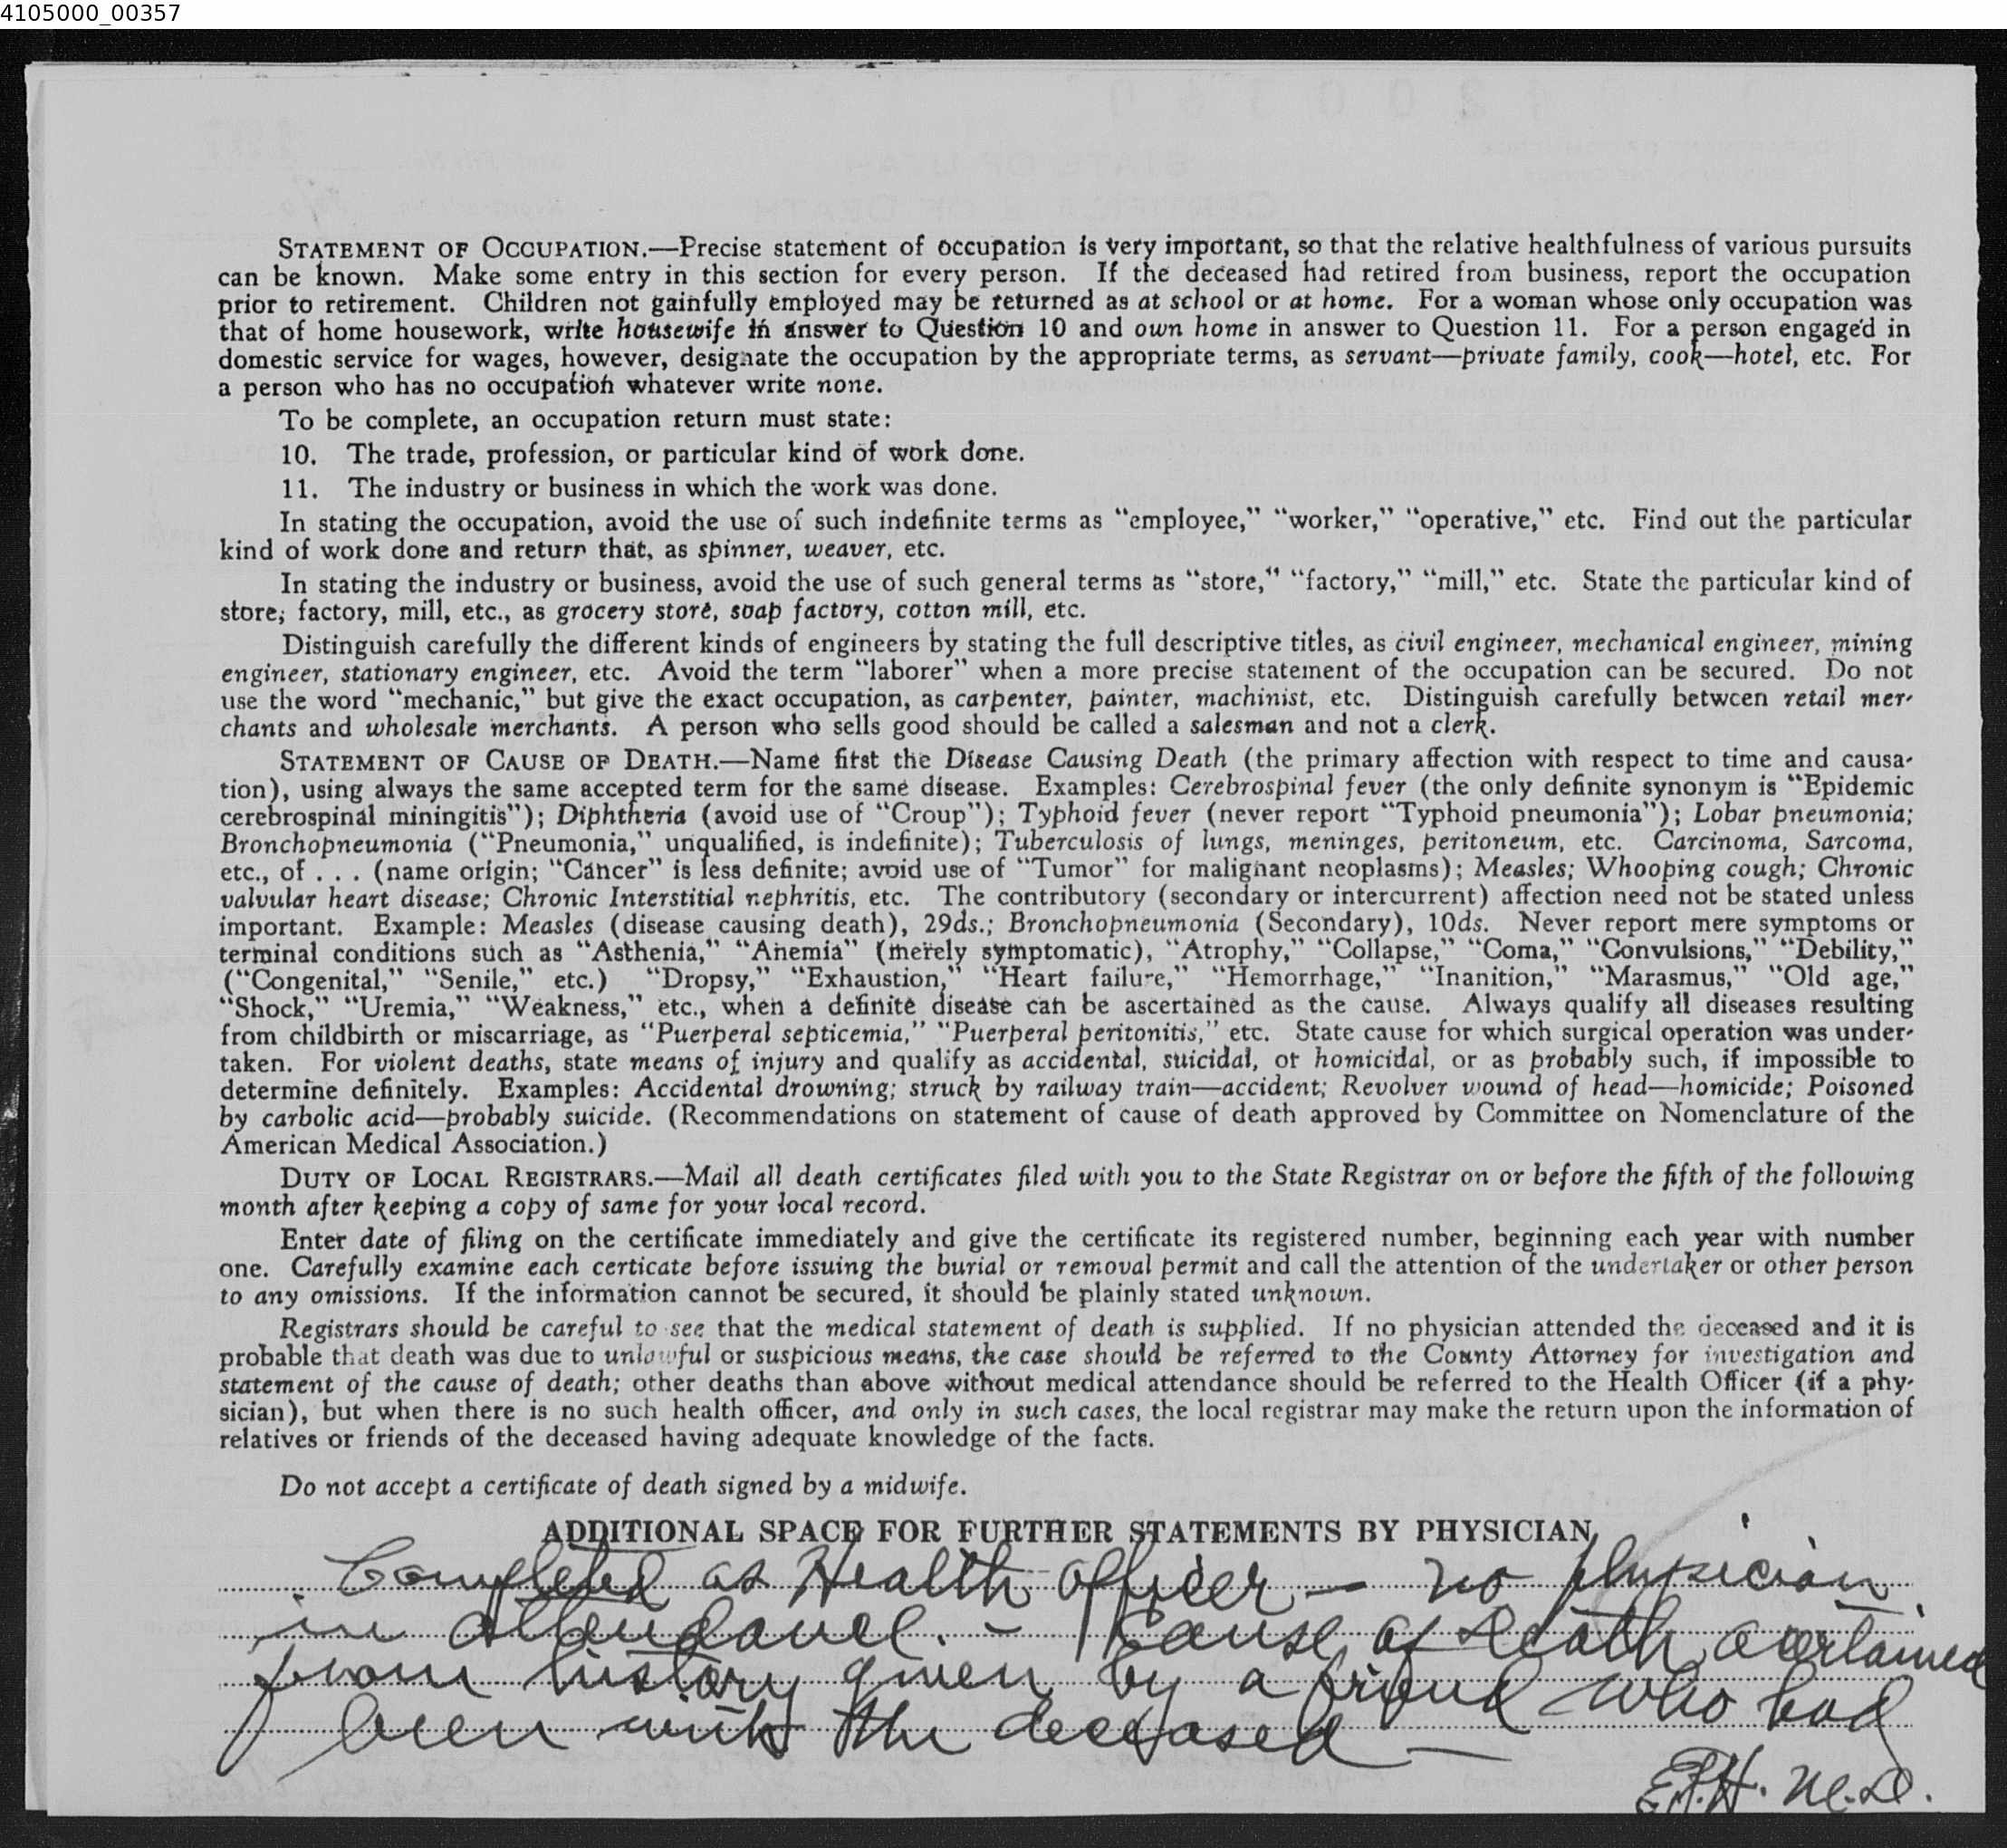 4105000_00357
STATEMENT OF OCCUPATION.—Precise statement of occupation is very important, so that the relative healthfulness of various pursuits
can be known. Make some entry in this section for every person. If the deceased had retired from business, report the occupation
prior to retirement. Children not gainfully employed may be returned as at school or at home. For a woman whose only occupation was
that of home housework, write housewife in answer to Question 10 and own home in answer to Question 11. For a person engaged in
domestic service for wages, however, designate the occupation by the appropriate terms, as servant—private family, cook—hotel, etc. For
a person who has no occupation whatever write none.
To be complete, an occupation return must state:
10. The trade, profession, or particular kind of work done.
11. The industry or business in which the work was done.
In stating the occupation, avoid the use of such indefinite terms as “employee,” “worker,” “operative,” etc. Find out the particular
kind of work done and return that, as spinner, weaver, etc.
In stating the industry or business, avoid the use of such general terms as “store,” “factory,” “mill,” etc. State the particular kind of
store, factory, mill, etc., as grocery store, soap factory, cotton mill, etc.
Distinguish carefully the different kinds of engineers by stating the full descriptive titles, as civil engineer, mechanical engineer, mining
engineer, stationary engineer, etc. Avoid the term “laborer” when a more precise statement of the occupation can be secured. Do not
use the word “mechanic,” but give the exact occupation, as carpenter, painter, machinist, etc. Distinguish carefully between retail mer-
chants and wholesale merchants. A person who sells good should be called a salesman and not a clerk.
STATEMENT OF CAUSE OF DEATH.—Name first the Disease Causing Death (the primary affection with respect to time and causa-
tion), using always the same accepted term for the same disease. Examples: Cerebrospinal fever (the only definite synonym is “Epidemic
cerebrospinal miningitis”); Diphtheria (avoid use of “Croup”); Typhoid fever (never report “Typhoid pneumonia”); Lobar pneumonia;
Bronchopneumonia (“Pneumonia,” unqualified, is indefinite); Tuberculosis of lungs, meninges, peritoneum, etc. Carcinoma, Sarcoma,
etc., of . . . (name origin; “Cancer” is less definite; avoid use of “Tumor” for malignant neoplasms); Measles; Whooping cough; Chronic
valvular heart disease; Chronic Interstitial nephritis, etc. The contributory (secondary or intercurrent) affection need not be stated unless
important. Example: Measles (disease causing death), 29ds.; Bronchopneumonia (Secondary), 10ds. Never report mere symptoms or
terminal conditions such as “Asthenia,” “Anemia” (merely symptomatic), “Atrophy,” “Collapse,” “Coma,” “Convulsions,” “Debility,”
(“Congenital,” “Senile,” etc.) “Dropsy,” “Exhaustion,” “Heart failure,” “Hemorrhage,” “Inanition,” “Marasmus,” “Old age,”
“Shock,” “Uremia,” “Weakness,” etc., when a definite disease can be ascertained as the cause. Always qualify all diseases resulting
from childbirth or miscarriage, as “Puerperal septicemia,” “Puerperal peritonitis,” etc. State cause for which surgical operation was under-
taken. For violent deaths, state means of injury and qualify as accidental, suicidal, or homicidal, or as probably such, if impossible to
determine definitely. Examples: Accidental drowning; struck by railway train—accident; Revolver wound of head—homicide; Poisoned
by carbolic acid—probably suicide. (Recommendations on statement of cause of death approved by Committee on Nomenclature of the
American Medical Association.)
DUTY OF LOCAL REGISTRARS.—Mail all death certificates filed with you to the State Registrar on or before the fifth of the following
month after keeping a copy of same for your local record.
Enter date of filing on the certificate immediately and give the certificate its registered number, beginning each year with number
one. Carefully examine each certicate before issuing the burial or removal permit and call the attention of the undertaker or other person
to any omissions. If the information cannot be secured, it should be plainly stated unknown.
Registrars should be careful to see that the medical statement of death is supplied. If no physician attended the deceased and it is
probable that death was due to unlawful or suspicious means, the case should be referred to the County Attorney for investigation and
statement of the cause of death; other deaths than above without medical attendance should be referred to the Health Officer (if a phy-
sician), but when there is no such health officer, and only in such cases, the local registrar may make the return upon the information of
relatives or friends of the deceased having adequate knowledge of the facts.
Do not accept a certificate of death signed by a midwife.
ADDITIONAL SPACE FOR FURTHER STATEMENTS BY PHYSICIAN
Completed as Health officer — no physician
in attendance. - Cause of death acertained
from history given by a friend who had
been with the deceased —
E.P.H. M.D.